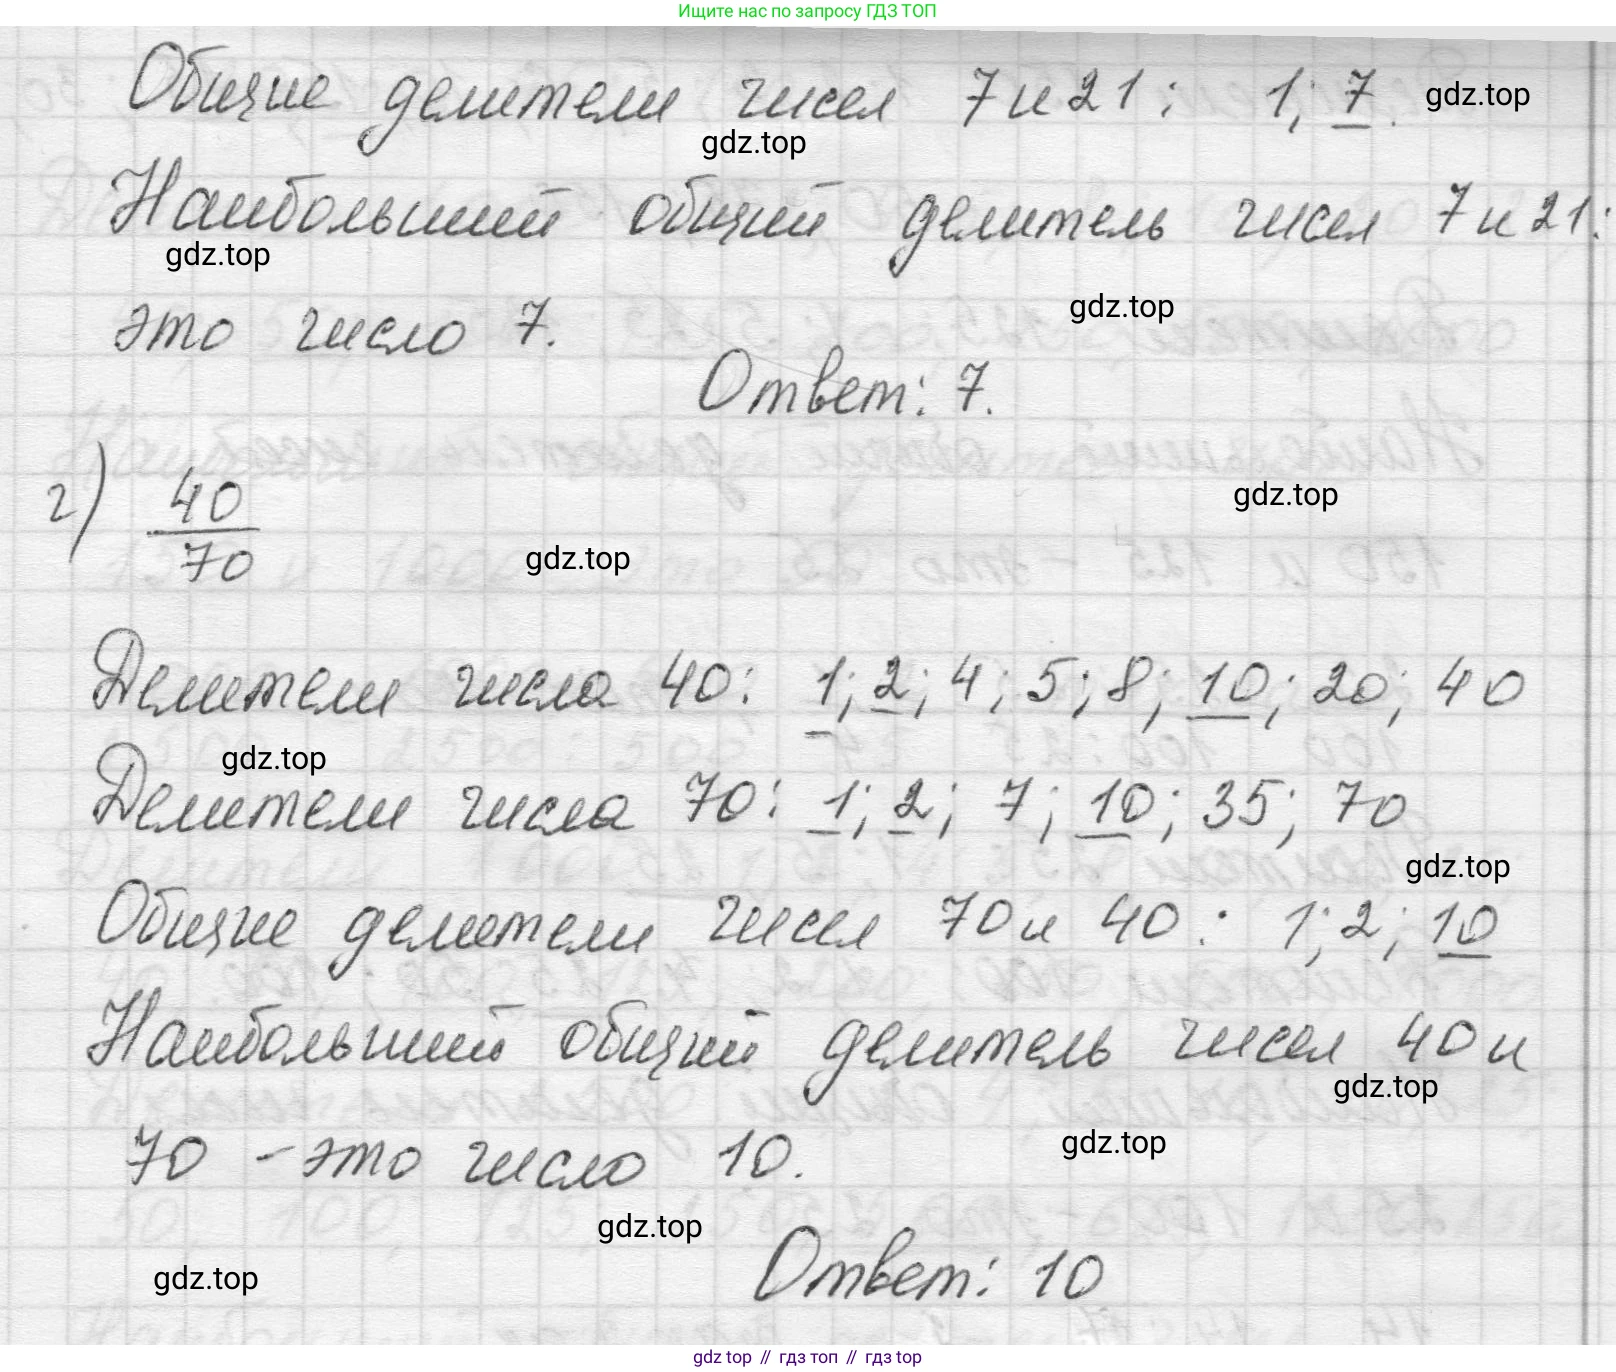 Ищите нас по запросу ГДЗ ТОП
Общие делители чисел 7 и 21: 1; 7. gdz.top
gdz.top
Наибольший общий делитель чисел 7 и 21:
gdz.top
gdz.top
это число 7.
Ответ: 7.
gdz.top
г) 40/70
gdz.top
Делители числа 40: 1; 2; 4; 5; 8; 10; 20; 40
gdz.top
Делители числа 70: 1; 2; 7; 10; 35; 70
gdz.top
Общие делители чисел 70 и 40: 1; 2; 10
Наибольший общий делитель чисел 40 и
gdz.top
70 - это число 10.
gdz.top
gdz.top
Ответ: 10
gdz.top
gdz top // гдз топ // gdz top